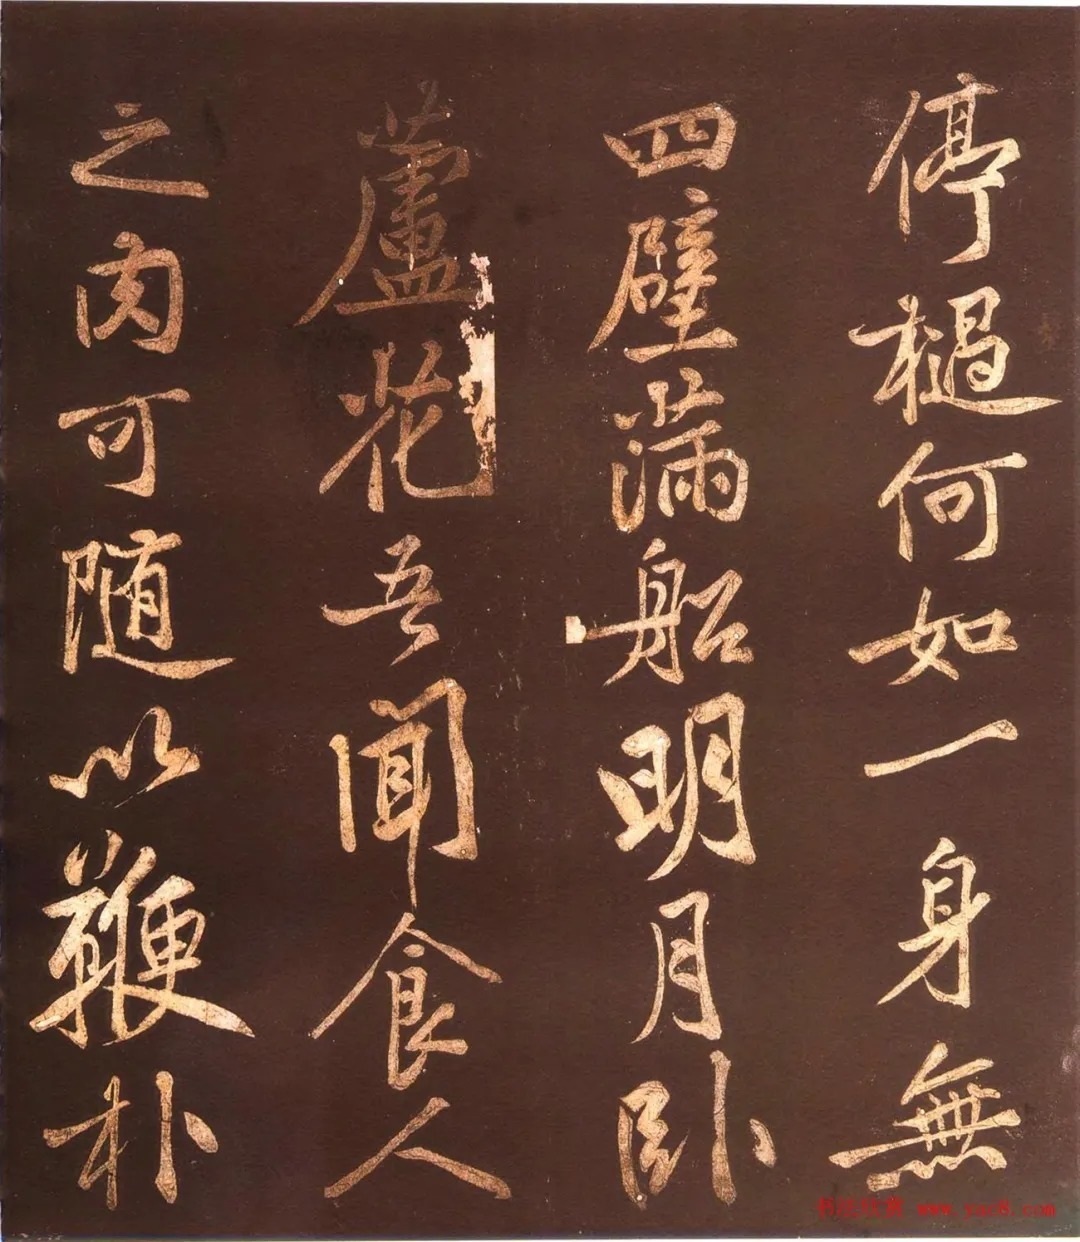 停檛何如一身無
四壁滿船明月卧
蘆花吾聞食人
之肉可隨以鞭朴
书法欣赏 www.yac8.com